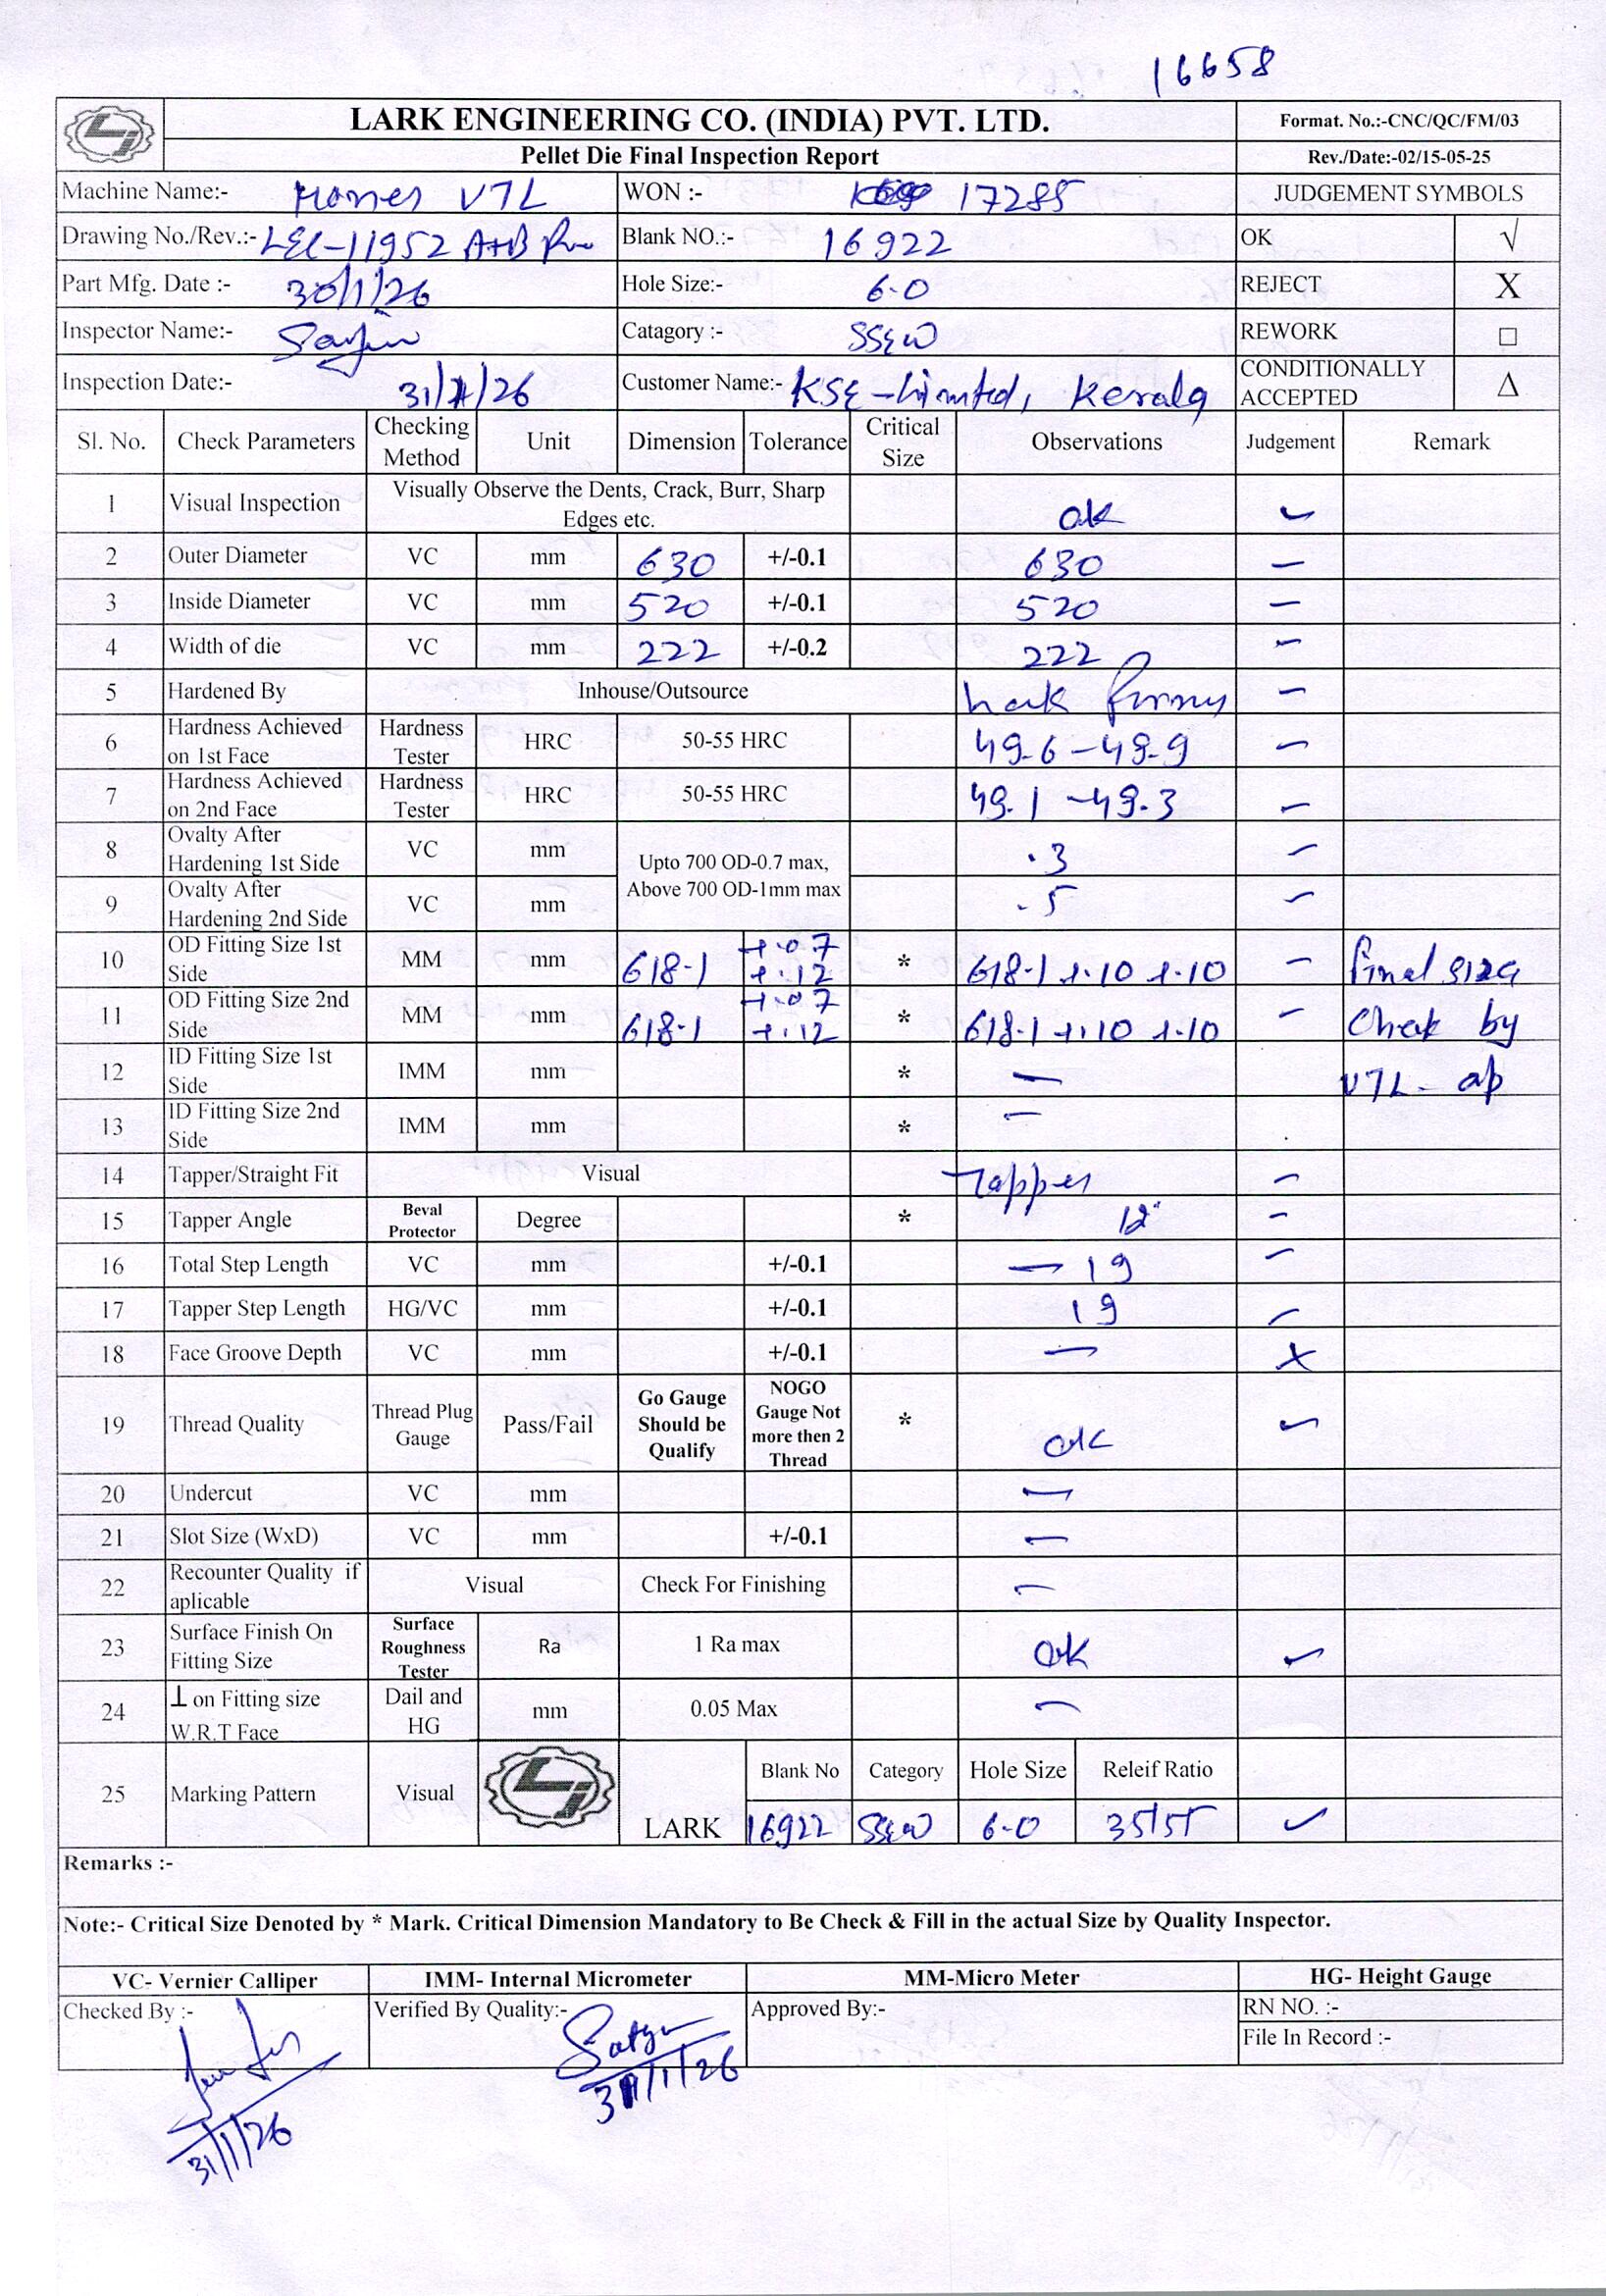 16658
LARK ENGINEERING CO. (INDIA) PVT. LTD.
Format. No.:-CNC/QC/FM/03
Pellet Die Final Inspection Report
Rev./Date:-02/15-05-25
Machine Name:- VTL WON :- 17285 JUDGEMENT SYMBOLS
Drawing No./Rev.:- LEC-11952 A+B Blank NO.:- 16922 OK √
Part Mfg. Date :- 30/1/26 Hole Size:- 6.0 REJECT X
Inspector Name:- Catagory :- SS&W REWORK □
Inspection Date:- 31/1/26 Customer Name:- KSE-Limited, Kerala CONDITIONALLY ACCEPTED Δ
Sl. No. Check Parameters Checking Method Unit Dimension Tolerance Critical Size Observations Judgement Remark
1 Visual Inspection Visually Observe the Dents, Crack, Burr, Sharp Edges etc. ok ✓
2 Outer Diameter VC mm 630 +/-0.1 630 –
3 Inside Diameter VC mm 520 +/-0.1 520 –
4 Width of die VC mm 222 +/-0.2 222 –
5 Hardened By Inhouse/Outsource –
6 Hardness Achieved on 1st Face Hardness Tester HRC 50-55 HRC 49.6 – 49.9 –
7 Hardness Achieved on 2nd Face Hardness Tester HRC 50-55 HRC 49.1 – 49.3 –
8 Ovalty After Hardening 1st Side VC mm Upto 700 OD-0.7 max, Above 700 OD-1mm max .3 –
9 Ovalty After Hardening 2nd Side VC mm .5 –
10 OD Fitting Size 1st Side MM mm 618.1 +.07 +.12 * 618.1 +.10 +.10 – final size
11 OD Fitting Size 2nd Side MM mm 618.1 +.07 +.12 * 618.1 +.10 +.10 – Check by
12 ID Fitting Size 1st Side IMM mm * – VTL- op
13 ID Fitting Size 2nd Side IMM mm * –
14 Tapper/Straight Fit Visual Tapper –
15 Tapper Angle Beval Protector Degree * 12° –
16 Total Step Length VC mm +/-0.1 – 19 –
17 Tapper Step Length HG/VC mm +/-0.1 19 –
18 Face Groove Depth VC mm +/-0.1 – X
19 Thread Quality Thread Plug Gauge Pass/Fail Go Gauge Should be Qualify NOGO Gauge Not more then 2 Thread * ok ✓
20 Undercut VC mm –
21 Slot Size (WxD) VC mm +/-0.1 –
22 Recounter Quality if aplicable Visual Check For Finishing –
23 Surface Finish On Fitting Size Surface Roughness Tester Ra 1 Ra max OK ✓
24 ⊥ on Fitting size W.R.T Face Dail and HG mm 0.05 Max –
25 Marking Pattern Visual LARK Blank No Category Hole Size Releif Ratio
16922 SS&W 6.0 35/55 ✓
Remarks :-
Note:- Critical Size Denoted by * Mark. Critical Dimension Mandatory to Be Check & Fill in the actual Size by Quality Inspector.
VC- Vernier Calliper IMM- Internal Micrometer MM-Micro Meter HG- Height Gauge
Checked By :- Verified By Quality:- Approved By:- RN NO. :-
File In Record :-
31/1/26
31/1/26